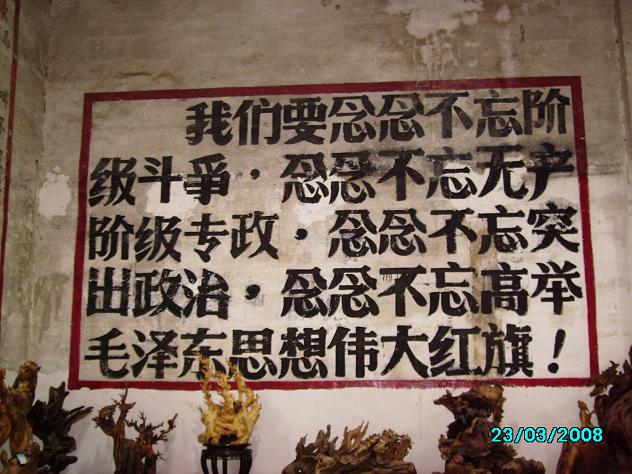 我们要念念不忘阶
级斗争·念念不忘无产
阶级专政·念念不忘突
出政治·念念不忘高举
毛泽东思想伟大红旗！
23/03/2008